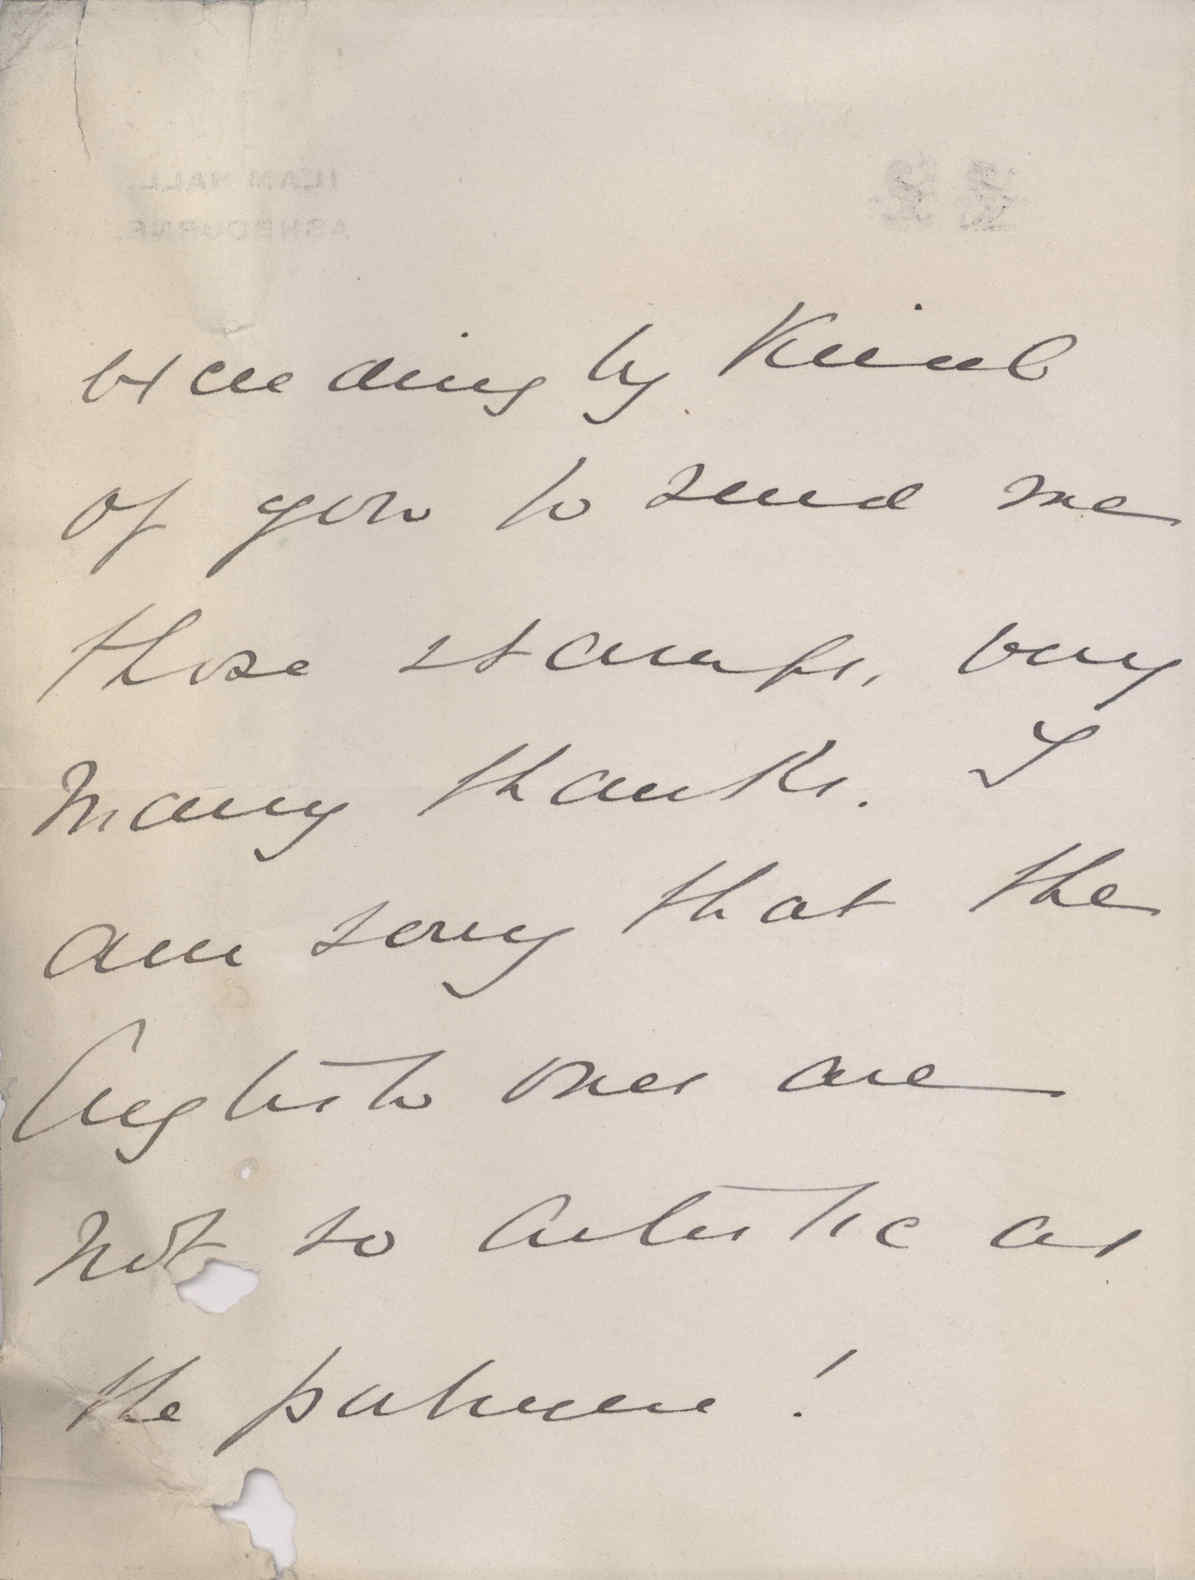 ILAM HALL,
ASHBOURNE.
exceedingly kind
of you to send me
those stamps, very
many thanks. I
am sorry that the
English ones are
not so artistic as
the !